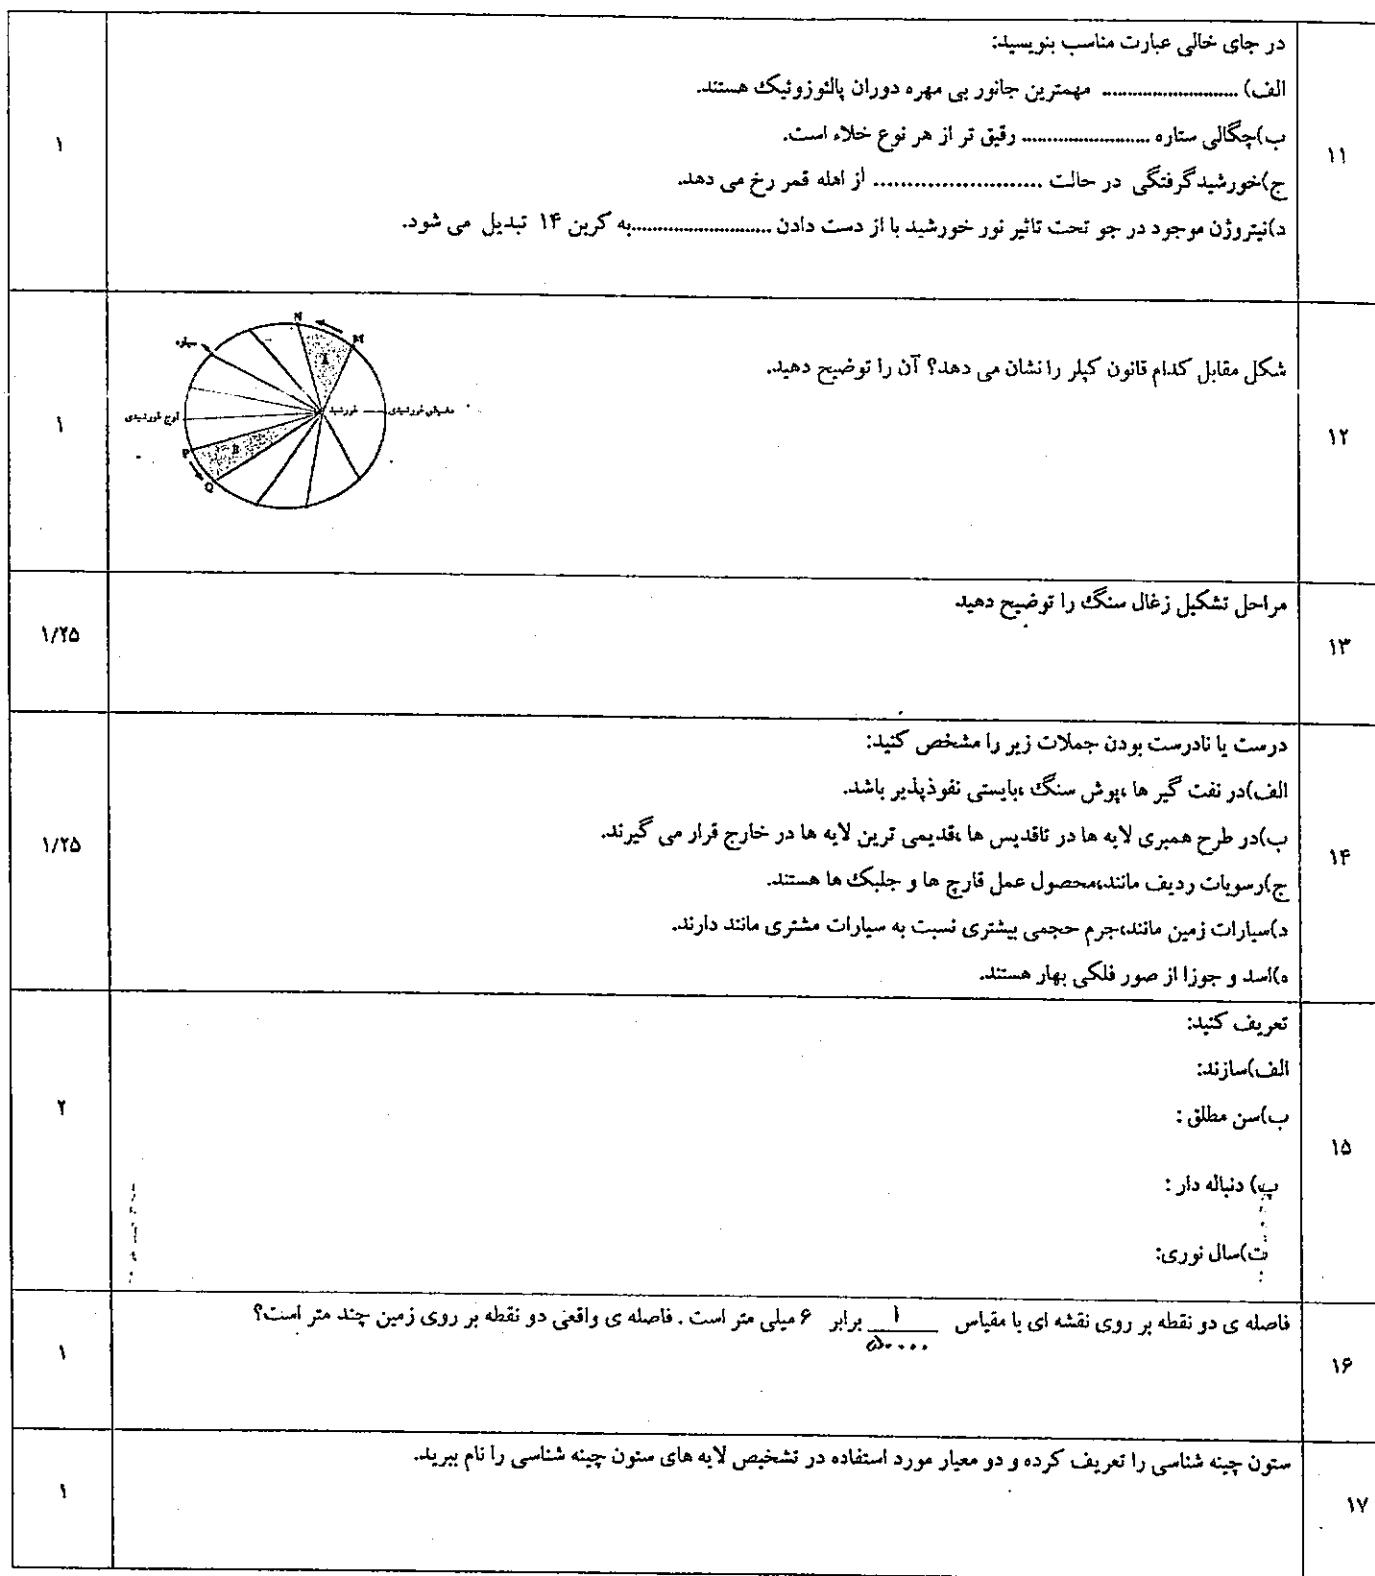 ۱۱
در جای خالی عبارت مناسب بنویسید:
الف) .............................. مهمترین جانور بی مهره دوران پالئوزوئیک هستند.
ب)چگالی ستاره ............................ رقیق تر از هر نوع خلاء است.
ج)خورشیدگرفتگی در حالت .......................... از اهله قمر رخ می دهد.
د)نیتروژن موجود در جو تحت تاثیر نور خورشید با از دست دادن ..............................به کربن ۱۴ تبدیل می شود.
۱
۱۲
شکل مقابل کدام قانون کپلر را نشان می دهد؟ آن را توضیح دهید.
N
M
A
سیاره
اوج خورشیدی
خورشید
حضیض خورشیدی
P
B
Q
۱
۱۳
مراحل تشکیل زغال سنگ را توضیح دهید
۱/۲۵
۱۴
درست یا نادرست بودن جملات زیر را مشخص کنید:
الف)در نفت گیر ها ،پوش سنگ ،بایستی نفوذپذیر باشد.
ب)در طرح همبری لایه ها در تاقدیس ها ،قدیمی ترین لایه ها در خارج قرار می گیرند.
ج)رسوبات ردیف مانند،محصول عمل قارچ ها و جلبک ها هستند.
د)سیارات زمین مانند،جرم حجمی بیشتری نسبت به سیارات مشتری مانند دارند.
ه)اسد و جوزا از صور فلکی بهار هستند.
۱/۲۵
۱۵
تعریف کنید:
الف)سازند:
ب)سن مطلق :
پ) دنباله دار :
ت)سال نوری:
۲
۱۶
فاصله ی دو نقطه بر روی نقشه ای با مقیاس ۱/۵۰۰۰۰ برابر ۶ میلی متر است . فاصله ی واقعی دو نقطه بر روی زمین چند متر است؟
۱
۱۷
ستون چینه شناسی را تعریف کرده و دو معیار مورد استفاده در تشخیص لایه های ستون چینه شناسی را نام ببرید.
۱